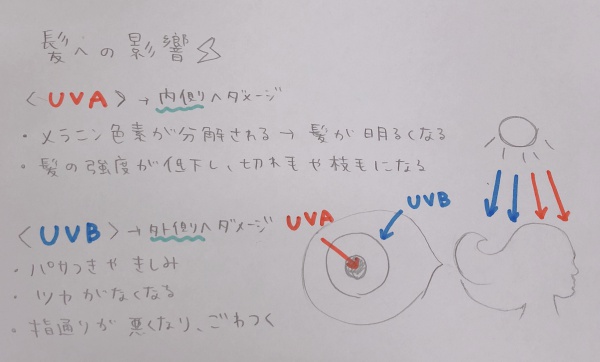 髪への影響
〈UVA〉→内側へダメージ
・メラニン色素が分解される→髪が明るくなる
・髪の強度が低下し、切れ毛や枝毛になる
〈UVB〉→外側へダメージ
・パサつきやきしみ
・ツヤがなくなる
・指通りが悪くなり、ごわつく
UVA
UVB